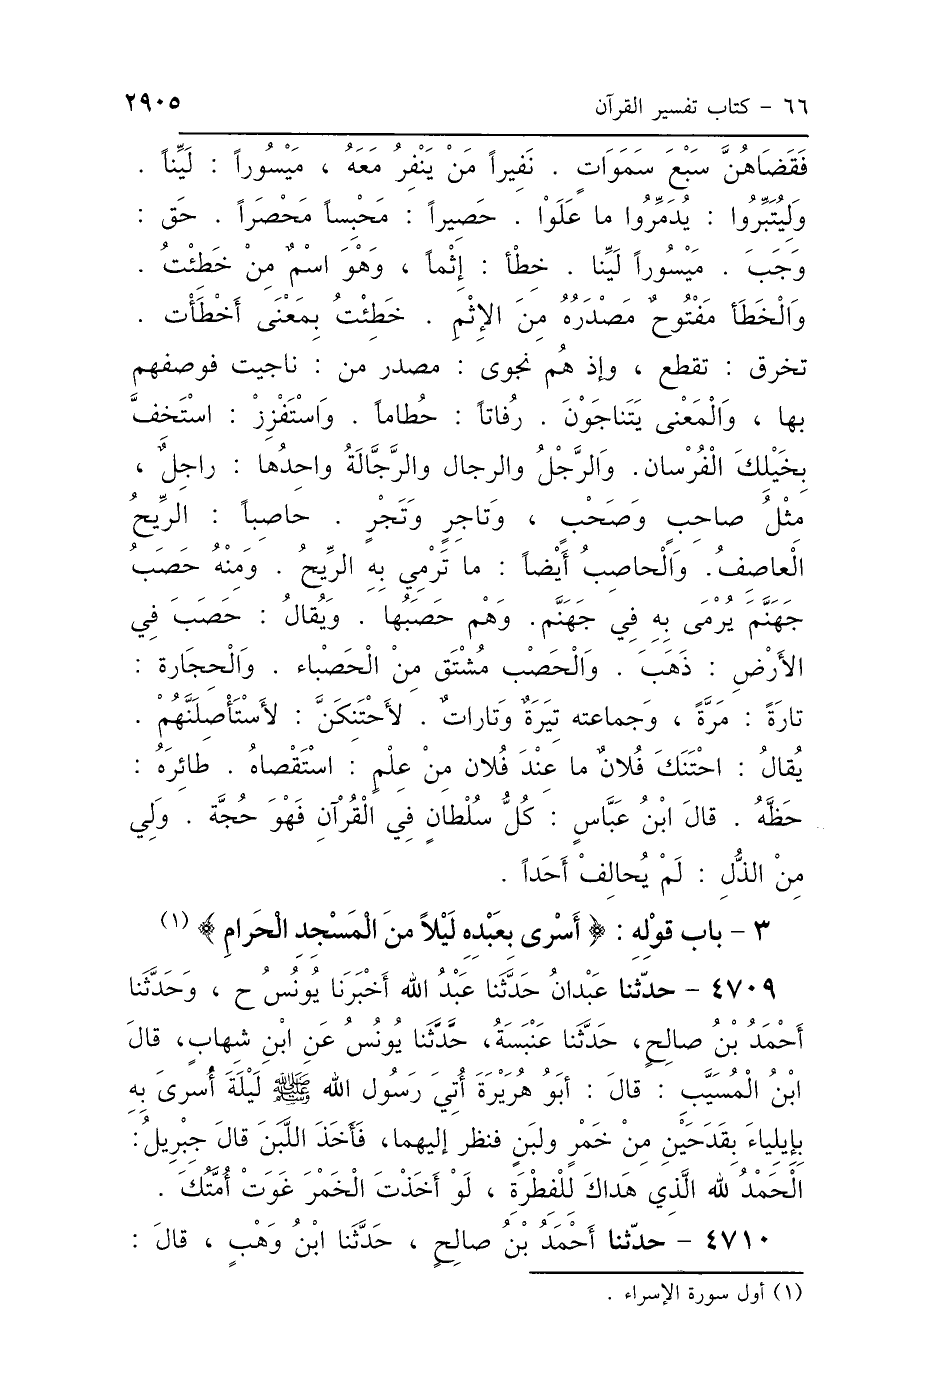 ٦٦ - كتاب تفسير القرآن
٢٩٠٥
فَقَضَاهُنَّ سَبْعَ سَمَوَاتٍ . نَفِيراً مَنْ يَنْفِرُ مَعَهُ ، مَيْسُوراً : لَيِّناً .
وَلِيُتَبِّرُوا : يُدَمِّرُوا ما عَلَوْا . حَصِيراً : مَحْبِساً مَحْصَراً . حَق :
وَجَبَ . مَيْسُوراً لَيِّنا . خطأ : إِثْماً ، وَهْوَ اسْمٌ مِنْ خَطِئتُ .
وَالْخَطَأ مَفْتُوحٌ مَصْدَرُهُ مِنَ الإِثْمِ . خَطِئْتُ بِمَعْنَى أَخْطَأْت .
تخرق : تقطع ، وإذ هُم نجوى : مصدر من : ناجيت فوصفهم
بها ، وَالْمَعْنى يَتَناجَوْنَ . رُفاتاً : حُطاماً . وَاسْتَفْزِزْ : اسْتَخِفَّ
بِخَيْلِكَ الْفُرْسان. وَالرَّجْلُ والرجال والرَّجَّالَةُ واحِدُها : راجِلٌ ،
مِثْلُ صاحِبٍ وَصَحْبٍ ، وَتاجِرٍ وَتَجْرٍ . حاصِباً : الرِّيحُ
الْعاصِفُ. وَالْحاصِبُ أَيْضاً : ما تَرْمِي بِهِ الرِّيحُ . وَمِنْهُ حَصَبُ
جَهَنَّمَ يُرْمَى بِهِ فِي جَهَنَّمِ. وَهْم حَصَبُها . وَيُقالُ : حَصَبَ فِي
الأَرْضِ : ذَهَبَ . وَالْحَصْب مُشْتَق مِنْ الْحَصْباء . وَالْحِجَارة :
تارَةً : مَرَّةً ، وَجماعته تِيَرَةٌ وَتاراتٌ . لأَحْتَنِكَنَّ : لأَسْتَأْصِلَنَّهُمْ .
يُقالُ : احْتَنَكَ فُلانٌ ما عِنْدَ فُلان مِنْ عِلْمٍ : اسْتَقْصاهُ . طائِرَهُ :
حَظَّهُ . قالَ ابْنُ عَبَّاسٍ : كُلُّ سُلْطانٍ فِي الْقُرْآنِ فَهْوَ حُجَّة . وَلِي
مِنْ الذُّلِ : لَمْ يُحالِفْ أَحَداً .
٣ - باب قوْلِهِ : ﴿ أَسْرَى بِعَبْدِهِ لَيْلاً مِنَ الْمَسْجِدِ الْحَرامِ ﴾ (١)
٤٧٠٩ - حدّثنا عَبْدانُ حَدَّثَنا عَبْدُ الله أَخْبَرَنا يُونُسُ ح ، وَحَدَّثَنا
أَحْمَدُ بْنُ صالِحٍ، حَدَّثَنا عَنْبَسَةُ، حَدَّثَنا يُونُسُ عَنِ ابْنِ شِهابٍ، قالَ
ابْنُ الْمُسَيَّبِ : قالَ : أَبُو هُرَيْرَةَ أُتِيَ رَسُول الله ﷺ لَيْلَةَ أُسرىَ بِهِ
بِإِيلِياءَ بِقَدَحَيْنِ مِنْ خَمْرٍ ولبَنٍ فنظر إليهما، فَأَخَذَ اللَّبَنَ قالَ جِبْرِيلُ:
الْحَمْدُ لله الَّذِي هَداكَ لِلْفِطْرَةِ ، لَوْ أَخَذْتَ الخَمْرَ غَوَتْ أُمَّتُكَ .
٤٧١٠ - حدّثنا أَحْمَدُ بْنُ صالِحٍ ، حَدَّثَنا ابْنُ وَهْبٍ ، قالَ :
(١) أول سورة الإسراء .